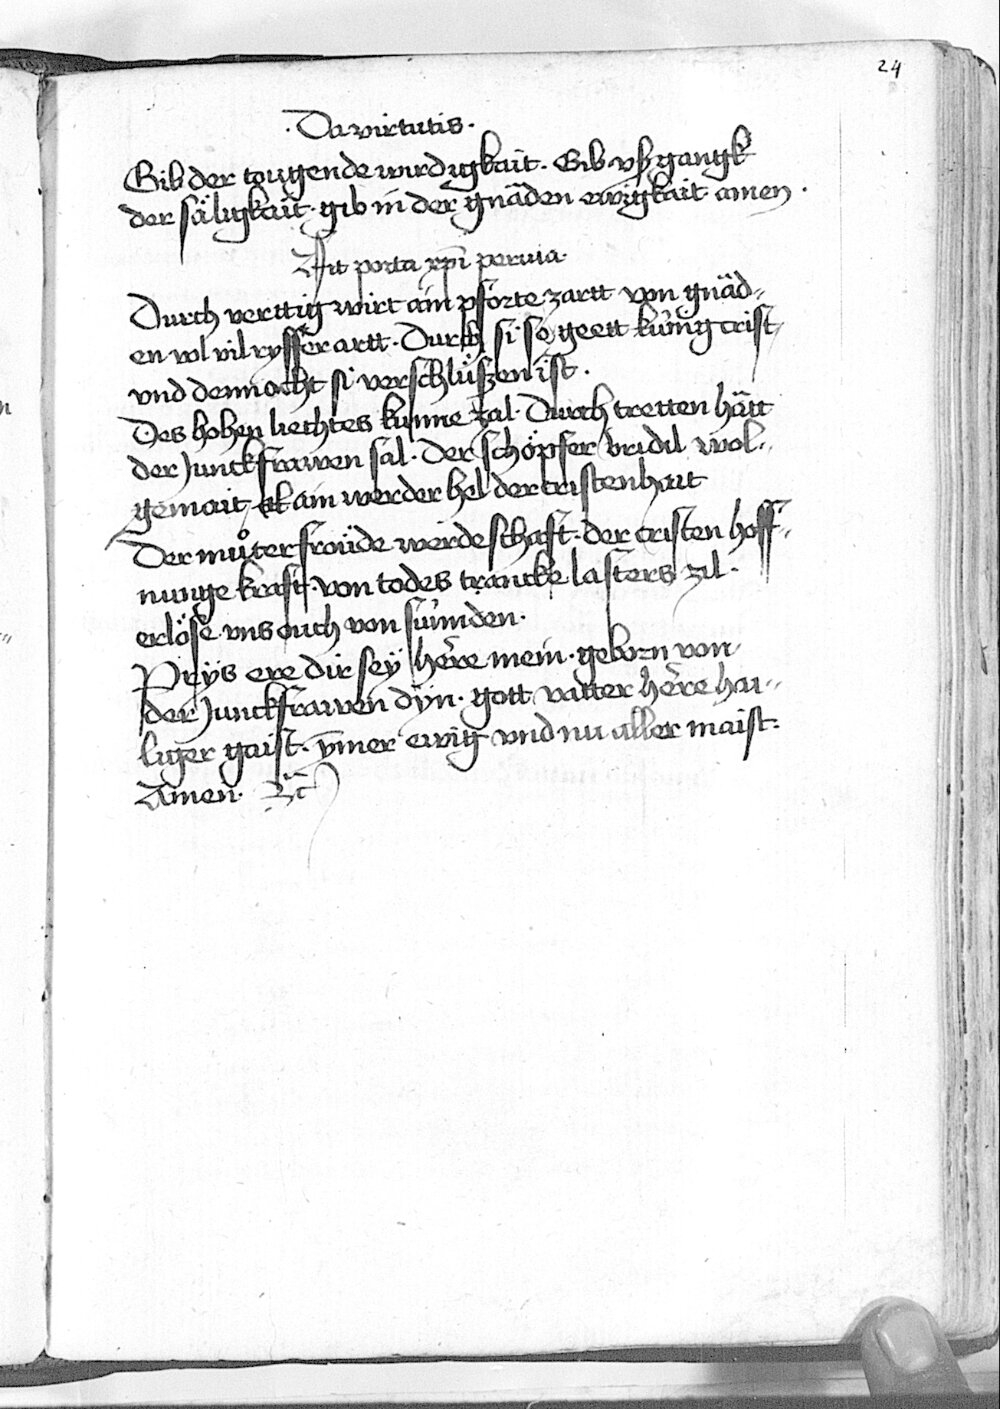 24
· Da virtutis ·
Gib der tougende wirdigkait · Gib vß gangk
der säligkait · gib in der gnäden ewigkait amen ·
Fit porta xp̄i peruia ·
Durch verttig wirt ain pforte zartt von gnäd⸗
en vol vil ryffer artt · Durch si so geett kúnig crist
vnd dennocht si verschlúßen ist ·
Des hohen liechtes kunne zal · Durch tretten hätt
der Junckfrawen sal · Der schöpfer vnd wol⸗
gemait ain werder hel der cristenhait
Der můter froüde werdeschaft · der cristen hoff⸗
nunge kraft · von todes trancke lasters zil ·
erlöse vns ouch von súnnden ·
Prÿs ere dir seÿ hëre mein · geborn von
der Junckfrawen dÿn · gott vatter hëre hai⸗
liger gaist · ÿmer ewig vnd nu aller maist ·
Amen · Zc̄